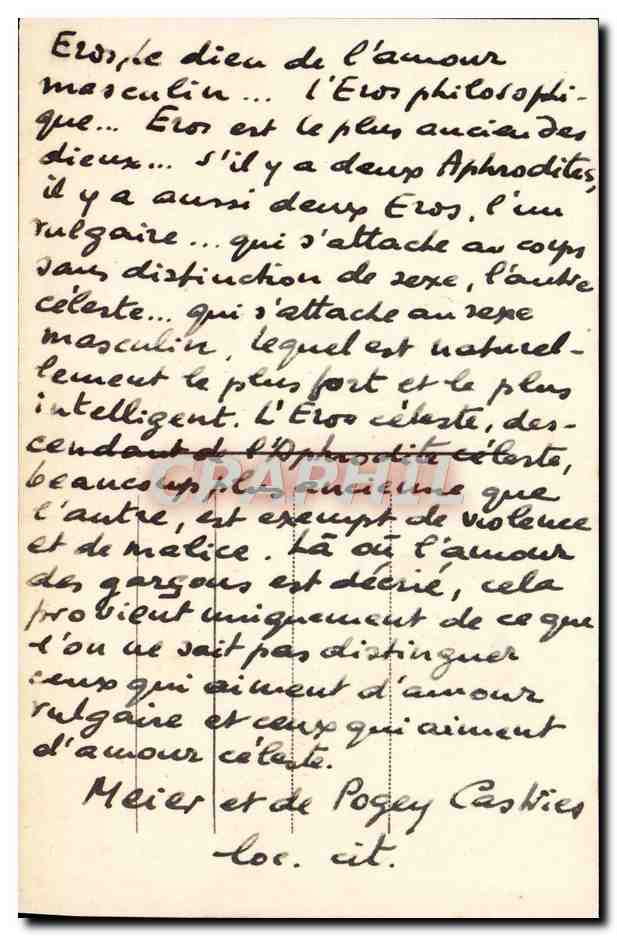 Eros, le dieu de l'amour
masculin... l'Eros philosophi-
que... Eros est le plus ancien des
dieux... S'il y a deux Aphrodites,
il y a aussi deux Eros, l'un
vulgaire... qui s'attache au corps
sans distinction de sexe, l'autre
céleste... qui s'attache au sexe
masculin, lequel est naturel-
lement le plus fort et le plus
intelligent. L'Eros céleste, des-
cendant de l'Aphrodite céleste,
CPAPHIL
beaucoup plus ancienne que
l'autre, est exempt de violence
et de malice. Là où l'amour
des garçons est décrié, cela
provient uniquement de ce que
l'on ne sait pas distinguer
ceux qui aiment d'amour
vulgaire et ceux qui aiment
d'amour céleste.
Meier et de Pogey Castries
loc. cit.